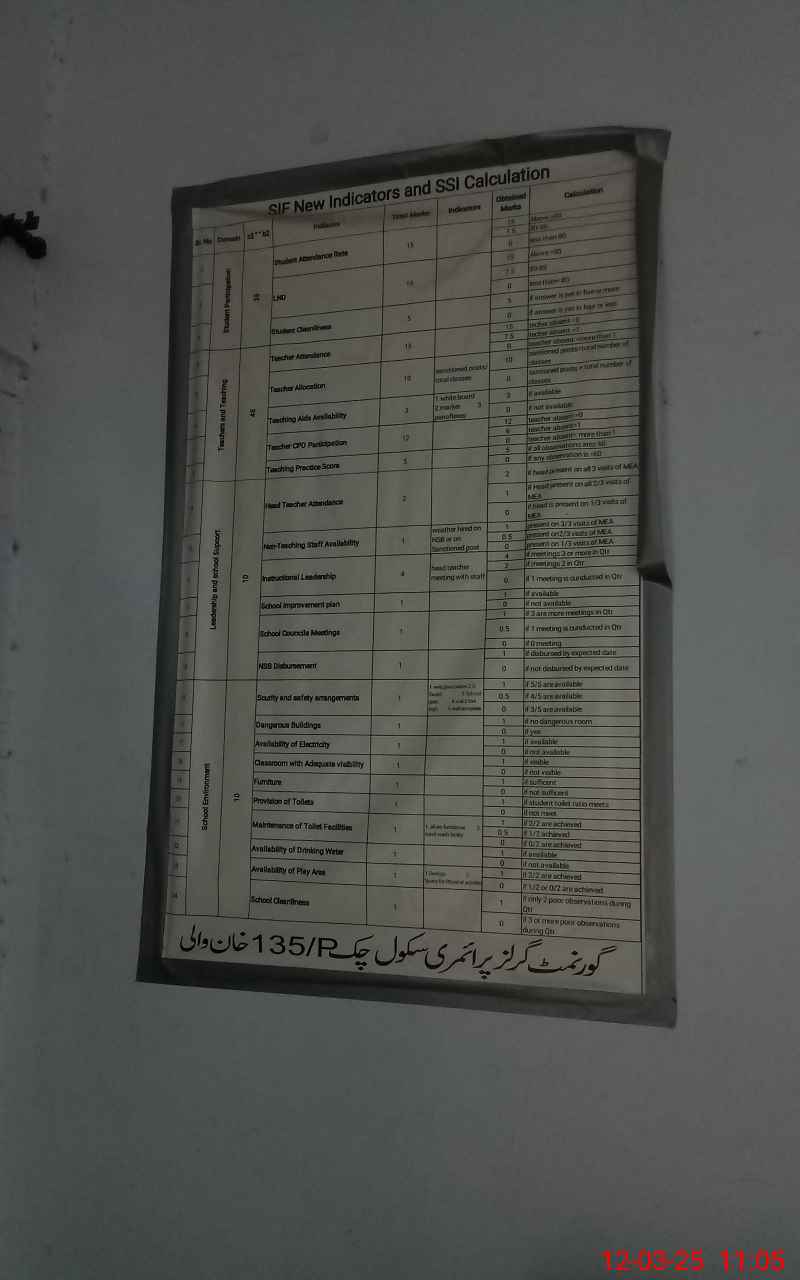 SIF New Indicators and SSI Calculation
Sr. No Domain Indicator Total Marks Indicators Obtained Marks Calculation
Student Participation 35
Student Attendance Rate 15
15 Above >90
7.5
0 less than 80
LND 15
15 Above >90
7.5
0 less than 80
Student Cleanliness 5
5 if answer is yet in five or more
0 if answer is yet in four or less
Teachers and Teaching 45
Teacher Attendance 15
15 techer absent =0
7.5 techer absent =1
0 teacher absent =more than 1
Teacher Allocation 10 sanctioned posts/ total classes
10 santioned posts=total number of classes
0 santioned posts ≠ total number of classes
Teaching Aids Availability 3 1.white board 2.marker 3 penaflexes
3 if available
0 if not available
Teacher CPD Participation 12
12 teacher absent=0
6 teacher absent=1
0 teacher absent= more than 1
Teaching Practice Score 5
5 if all observations are≥ 60
0 if any observation is <60
Leadership and school Support 10
Head Teacher Attendance 2
2 if head present on all 3 visits of MEA
1 if Head present on all 2/3 visits of MEA
0 if head is present on 1/3 visits of MEA
Non-Teaching Staff Availability 1 weather hired on NSB or on Sanctioned post
1 present on 3/3 visits of MEA
0.5 present on2/3 visits of MEA
0 present on 1/3 visits of MEA
Instructional Leadership 4 head teacher meeting with staff
4 if meetings 3 or more in Qtr
2 if meetings 2 in Qtr
0 if 1 meeting is cunducted in Qtr
School improvement plan 1
1 if available
0 if not available
School Councils Meetings 1
1 if 2 are more meetings in Qtr
0.5 if 1 meeting is cunducted in Qtr
0 if 0 meeting
NSB Disbursement 1
1 if disbursed by expected date
0 if not disbursed by expected date
School Environment 10
Scurity and safety arrangements 1
1 if 5/5 are available
0.5 if 4/5 are available
0 if 3/5 are available
Dangerous Buildings 1
1 if no dangerous room
0 if yes
Availability of Electricity 1
1 if available
0 if not available
Classroom with Adequate visibility 1
1 if visible
0 if not visible
Furniture 1
1 if sufficent
0 if not sufficent
Provision of Toilets 1
1 if student toilet ratio meets
0 if not meet
Maintenance of Toilet Facilities 1
1 if 2/2 are achieved
0.5 if 1/2 achieved
0 if 0/2 are achieved
Availability of Drinking Water 1
1 if available
0 if not available
Availability of Play Area 1
1 if 2/2 are achieved
0 if 1/2 or 0/2 are achieved
School Cleanliness 1
1 if only 2 poor observations during Qtr
0 if 3 or more poor observations during Qtr
گورنمنٹ گرلز پرائمری سکول چک 135/P خان والی
12-03-25 11:05